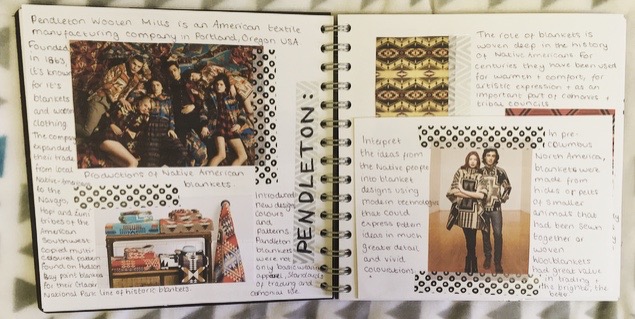 Pendleton Woolen Mills is an American textile
manufacturing company in Portland, Oregon USA
Founded
in 1863,
it's known
for it's
blankets
and woolen
clothing
The company
expanded
their trade
from local
Native-Americans
to the
Navajo,
Hopi and Zuni
tribes of the
American
Southwest.
Productions of Native American
blankets.
copied multi-
coloured pattern
found on Hudson
Bay point blankets
for their Glacier
National Park line of historic blankets.
Introduced
new design,
colours
and
patterns.
Pendleton
blankets
were not
only basic wearing
apparel, standards
of trading and
ceremonial use.
PENDLETON:
The role of blankets is
woven deep in the history
of Native Americans. For
centuries they have been used
for warmth + comfort, for
artistic expression + as an
important part of ceremonies +
tribal councils
Interpret
the ideas from
the Native people
into blanket
designs using
modern technologies
that could
express pattern
ideas in much
greater detail
and vivid
colourations.
In pre-
Columbus
North America,
blankets were
made from
hides or pelts
of smaller
animals that
had been sewn
together or
woven
Wool blankets
had great value
in trading +
the brighter, the
better.